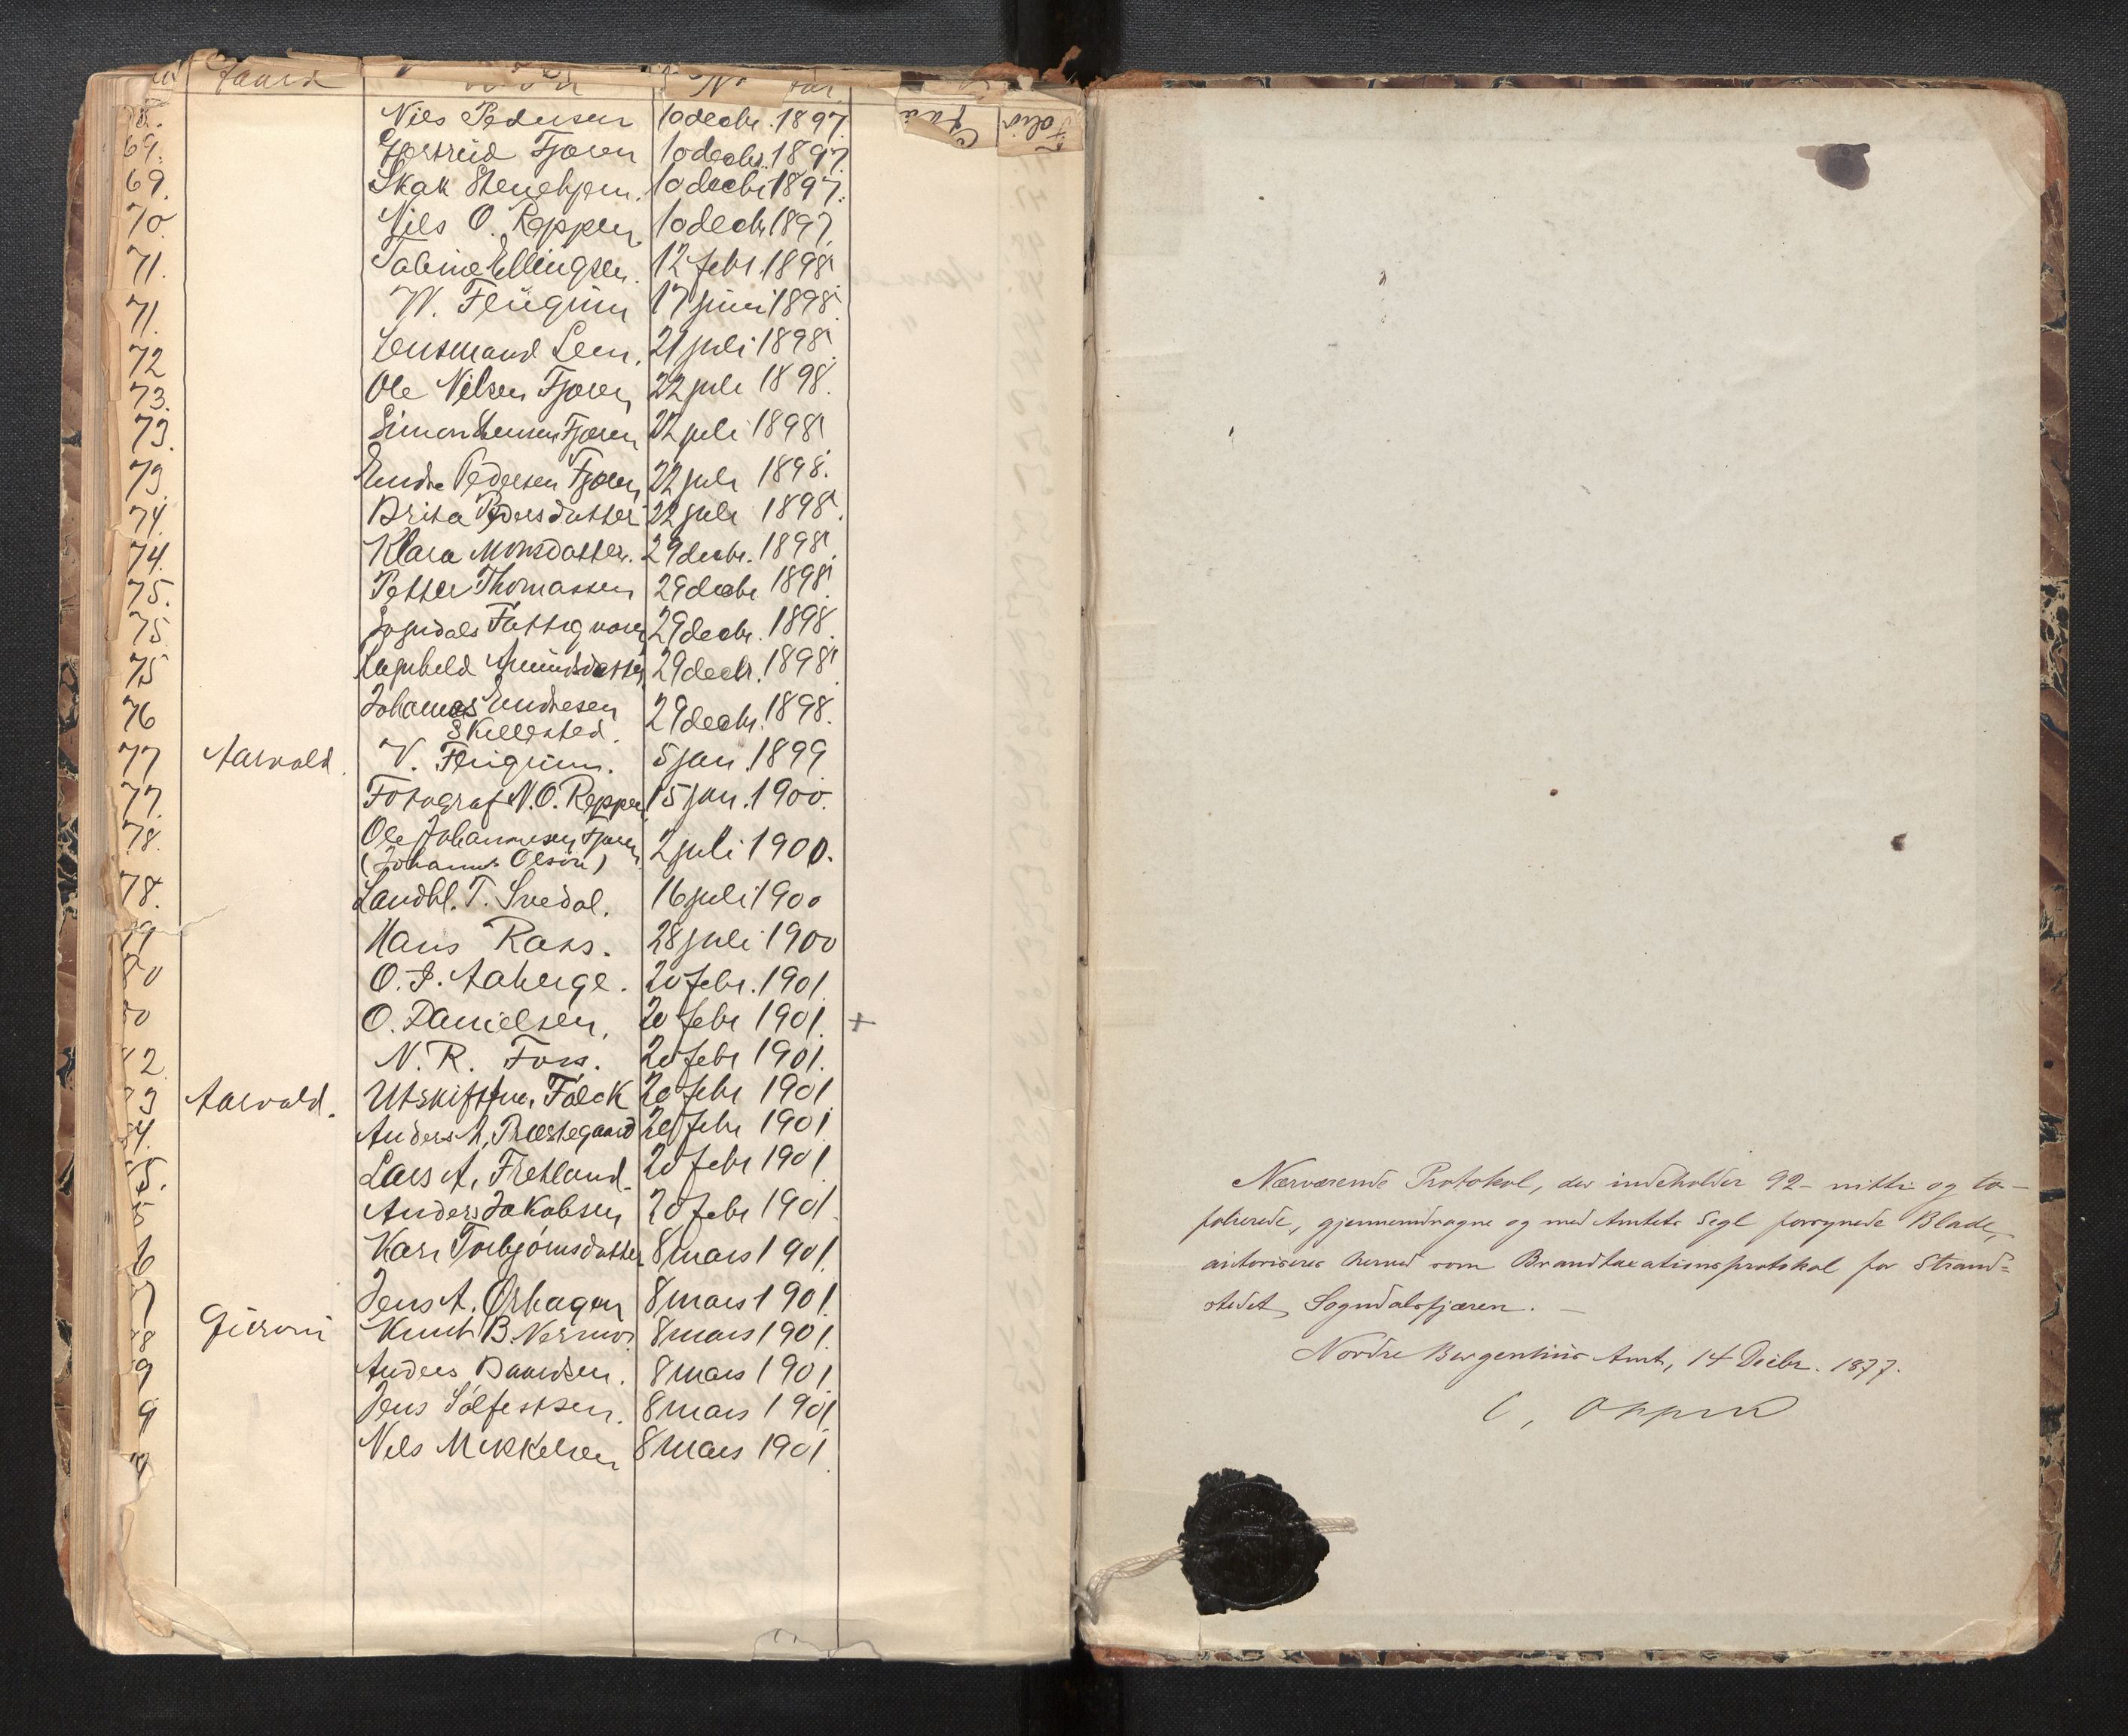 Gaard
No
Folio
68. Nils Pedersen 10 decbr. 1897.
69. Gjertrud Fjæren 10 decbr. 1897
69. Skak Stenehjem. 10 decbr 1897.
70. Nils O. Reppen 10 decbr 1897.
71. Tabine Ellingsen. 12 febr. 1898.
71. W. Flügum 17 juni 1898.
72 Lensmand Leen. 21 juli 1898.
73. Ole Nilsen Fjæren 22 juli 1898.
73. Simon Fjæren 22 juli 1898.
73 Endre Pedersen Fjæren 22 juli 1898.
74. Brita Pedersdatter 22 juli 1898.
74. Klara Monsdatter. 29 decbr. 1898.
75. Petter Thomassen 29 decbr 1898.
75. Sogndals Fattigvæsen 29 decbr. 1898.
75 Ragnhild Amundsdatter 29 decbr. 1898.
76 Johannes Endresen 29 decbr. 1898.
Skillestad.
77 Aarvold. V. Flugum. 5 jan. 1899
77. Fotograf N. O. Reppen 15 jan. 1900.
78. Ole Johannesen Fjæren 2 juli 1900.
(Johannes Olsen)
78. Landhl. T. Svedal. 16 juli 1900
79 Hans Raas. 28 juli 1900
80 O. J. Aaberge. 20 febr. 1901
80 O. Danielsen. 20 febr 1901. +
82. N. R. Foss. 20 febr 1901.
83 Aarvold. Utskiftfm. Falck 20 febr 1901
84. Anders A. Præstegaard 20 febr 1901
85. Lars A. Fretland. 20 febr 1901
85 Anders Jakobsen 20 febr 1901
86 Kari Torbjörnsdatter 8 mars 1901.
87 Jens A. Ørhagen 8 mars 1901.
88 Knut B. Nermo 8 mars 1901.
89 Anders Baardsen. 8 mars 1901
89 Jens Solfestsen. 8 mars 1901
Nils Mikkelsen 8 mars 1901.
Nærværende Protokol, der indeholder 92 – nitti og to –
folierede, gjennemdragne og med Amtets Segl forsynede Blade,
autoriseres herved som Brandtaxationsprotokol for Strand=
stedet Sogndalsfjæren. –
Nordre Bergenhus Amt, 14 Decbr. 1877.